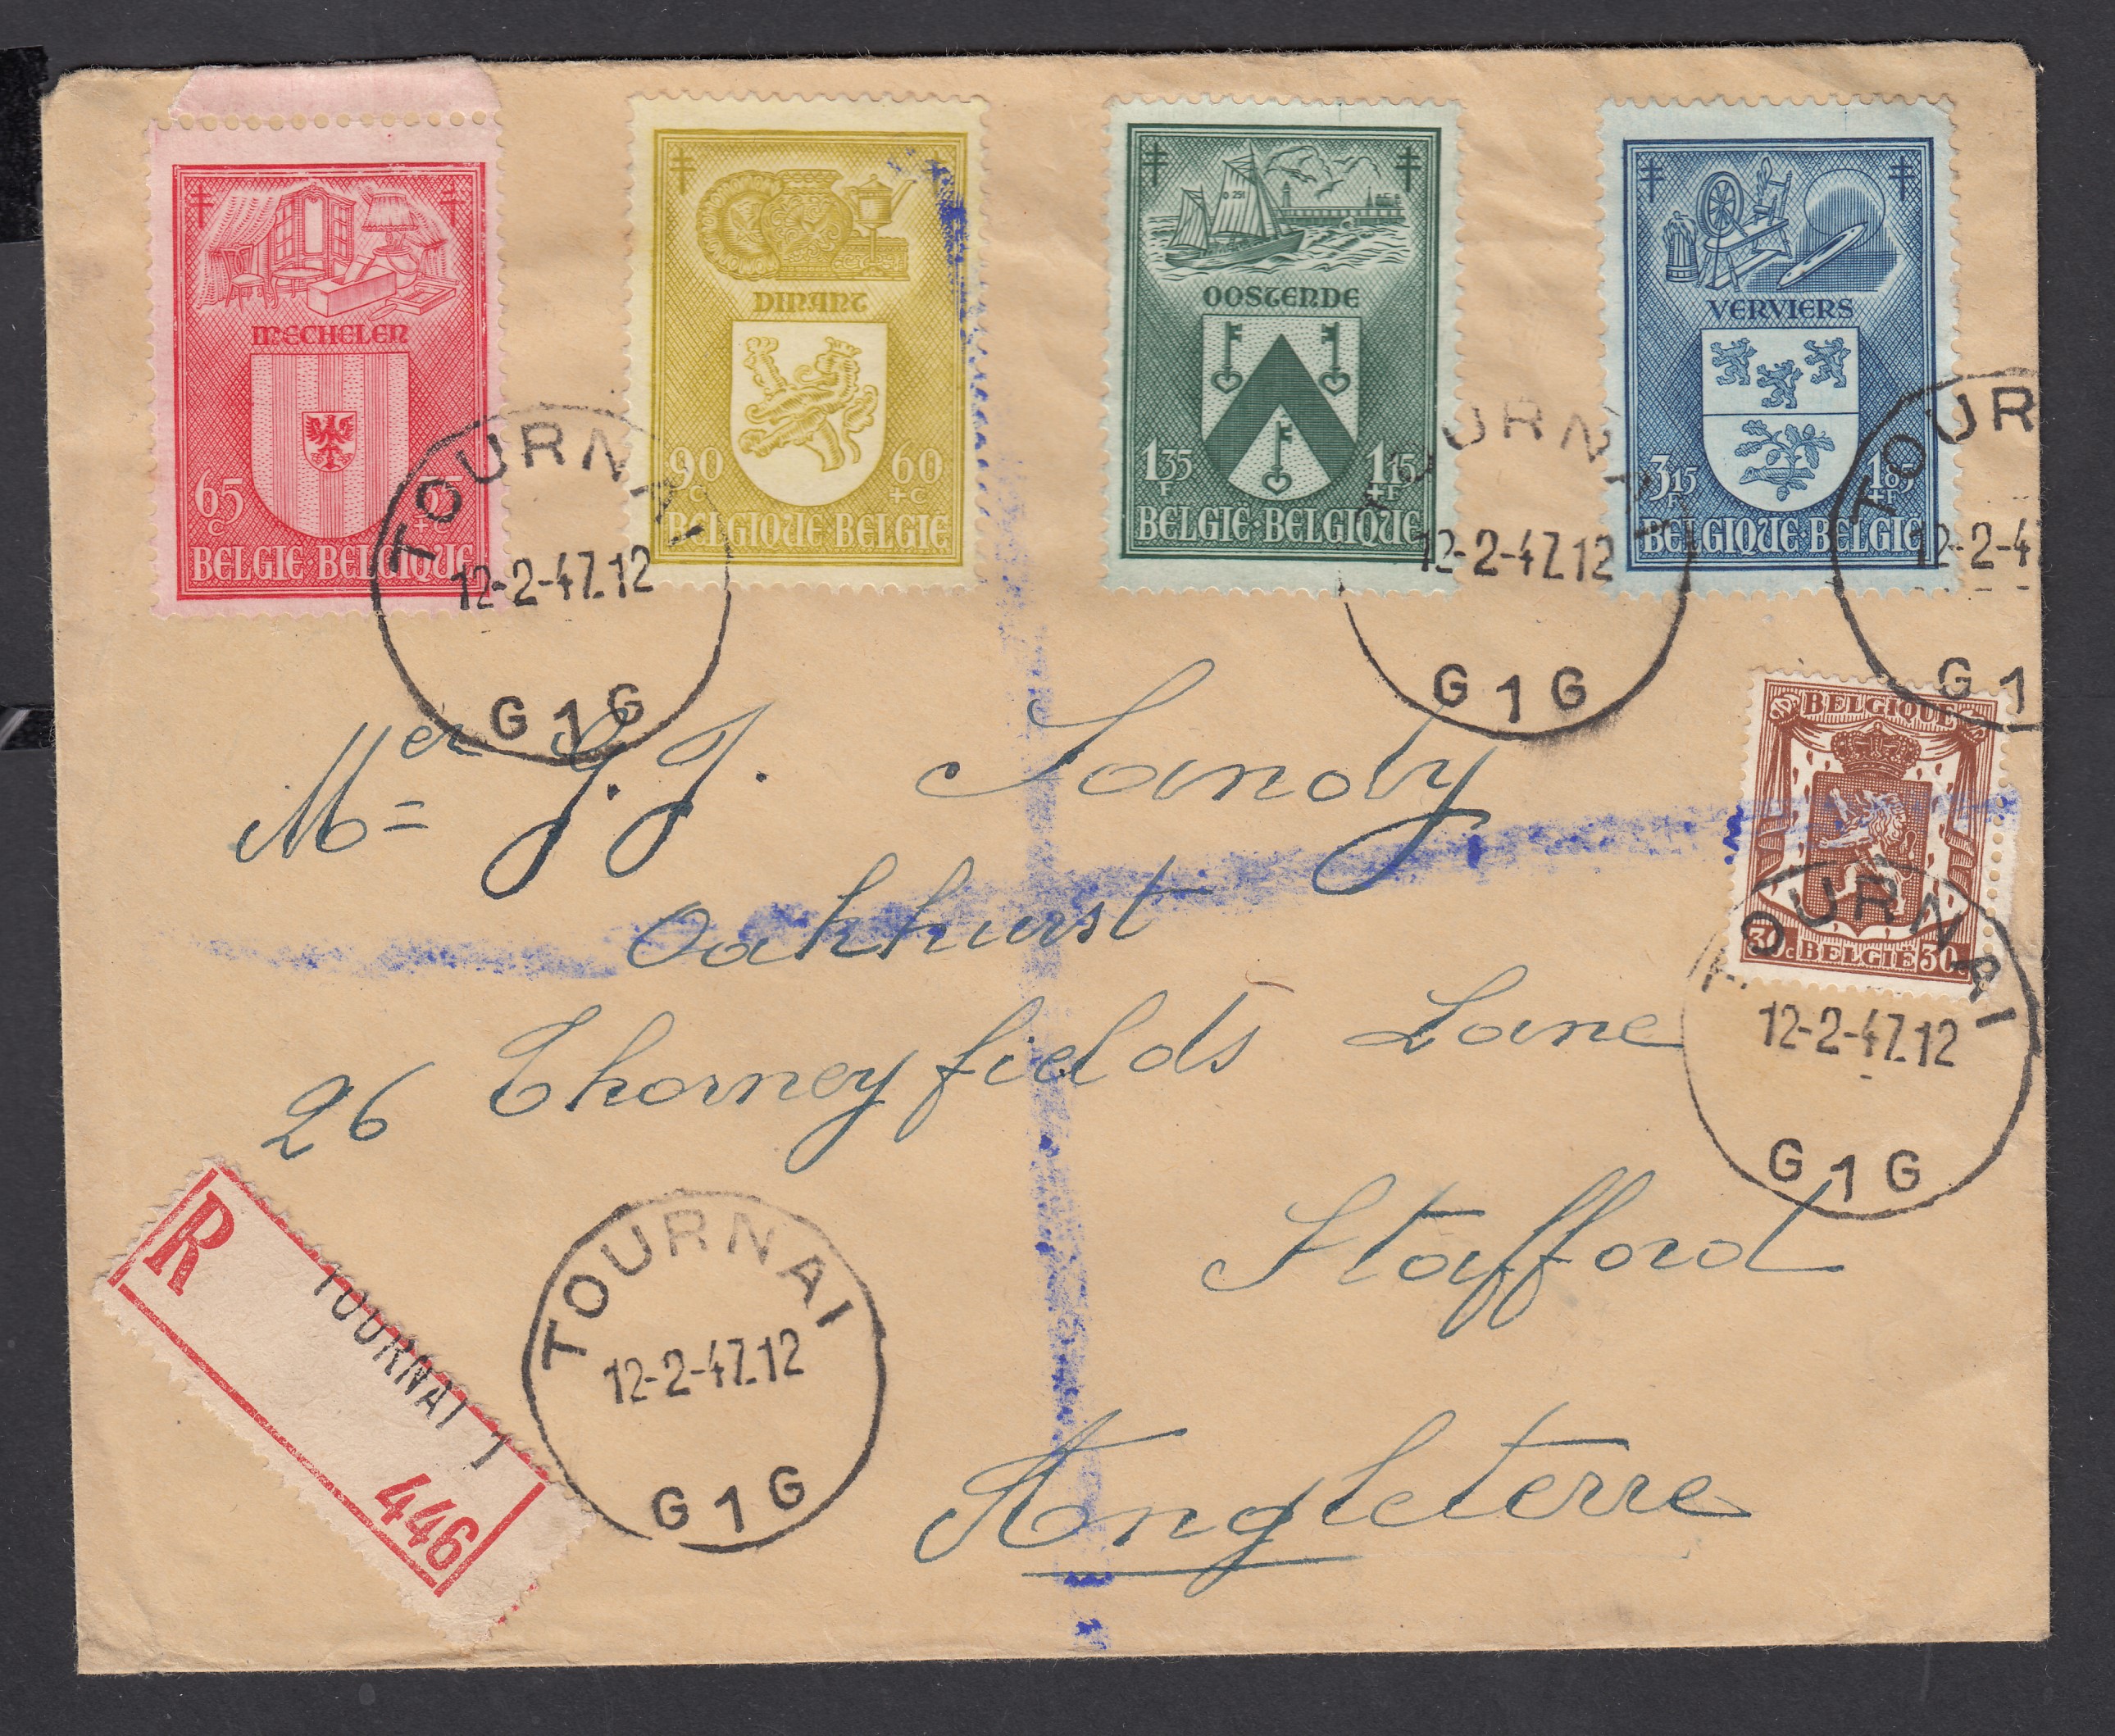 MECHELEN
65
C
BELGIE·BELGIQUE
DINANT
90
C
60
+C
BELGIQUE BELGIE
O 291
OOSTENDE
1,35
F
1,15
+F
BELGIE·BELGIQUE
VERVIERS
3,15
F
+F
BELGIQUE BELGIE
TOURNAI
12-2-47.12
G 1 G
TOURNAI
12-2-47.12
G 1 G
TOUR
12-2-47
G 1
BELGIQUE
30c BELGIE 30c
TOURNAI
12-2-47.12
G 1 G
Mer J.J. Sandy
Oakhurst
26 Thorneyfields Lane
Stafford
Angleterre
R
TOURNAI 1
446
TOURNAI
12-2-47.12
G 1 G